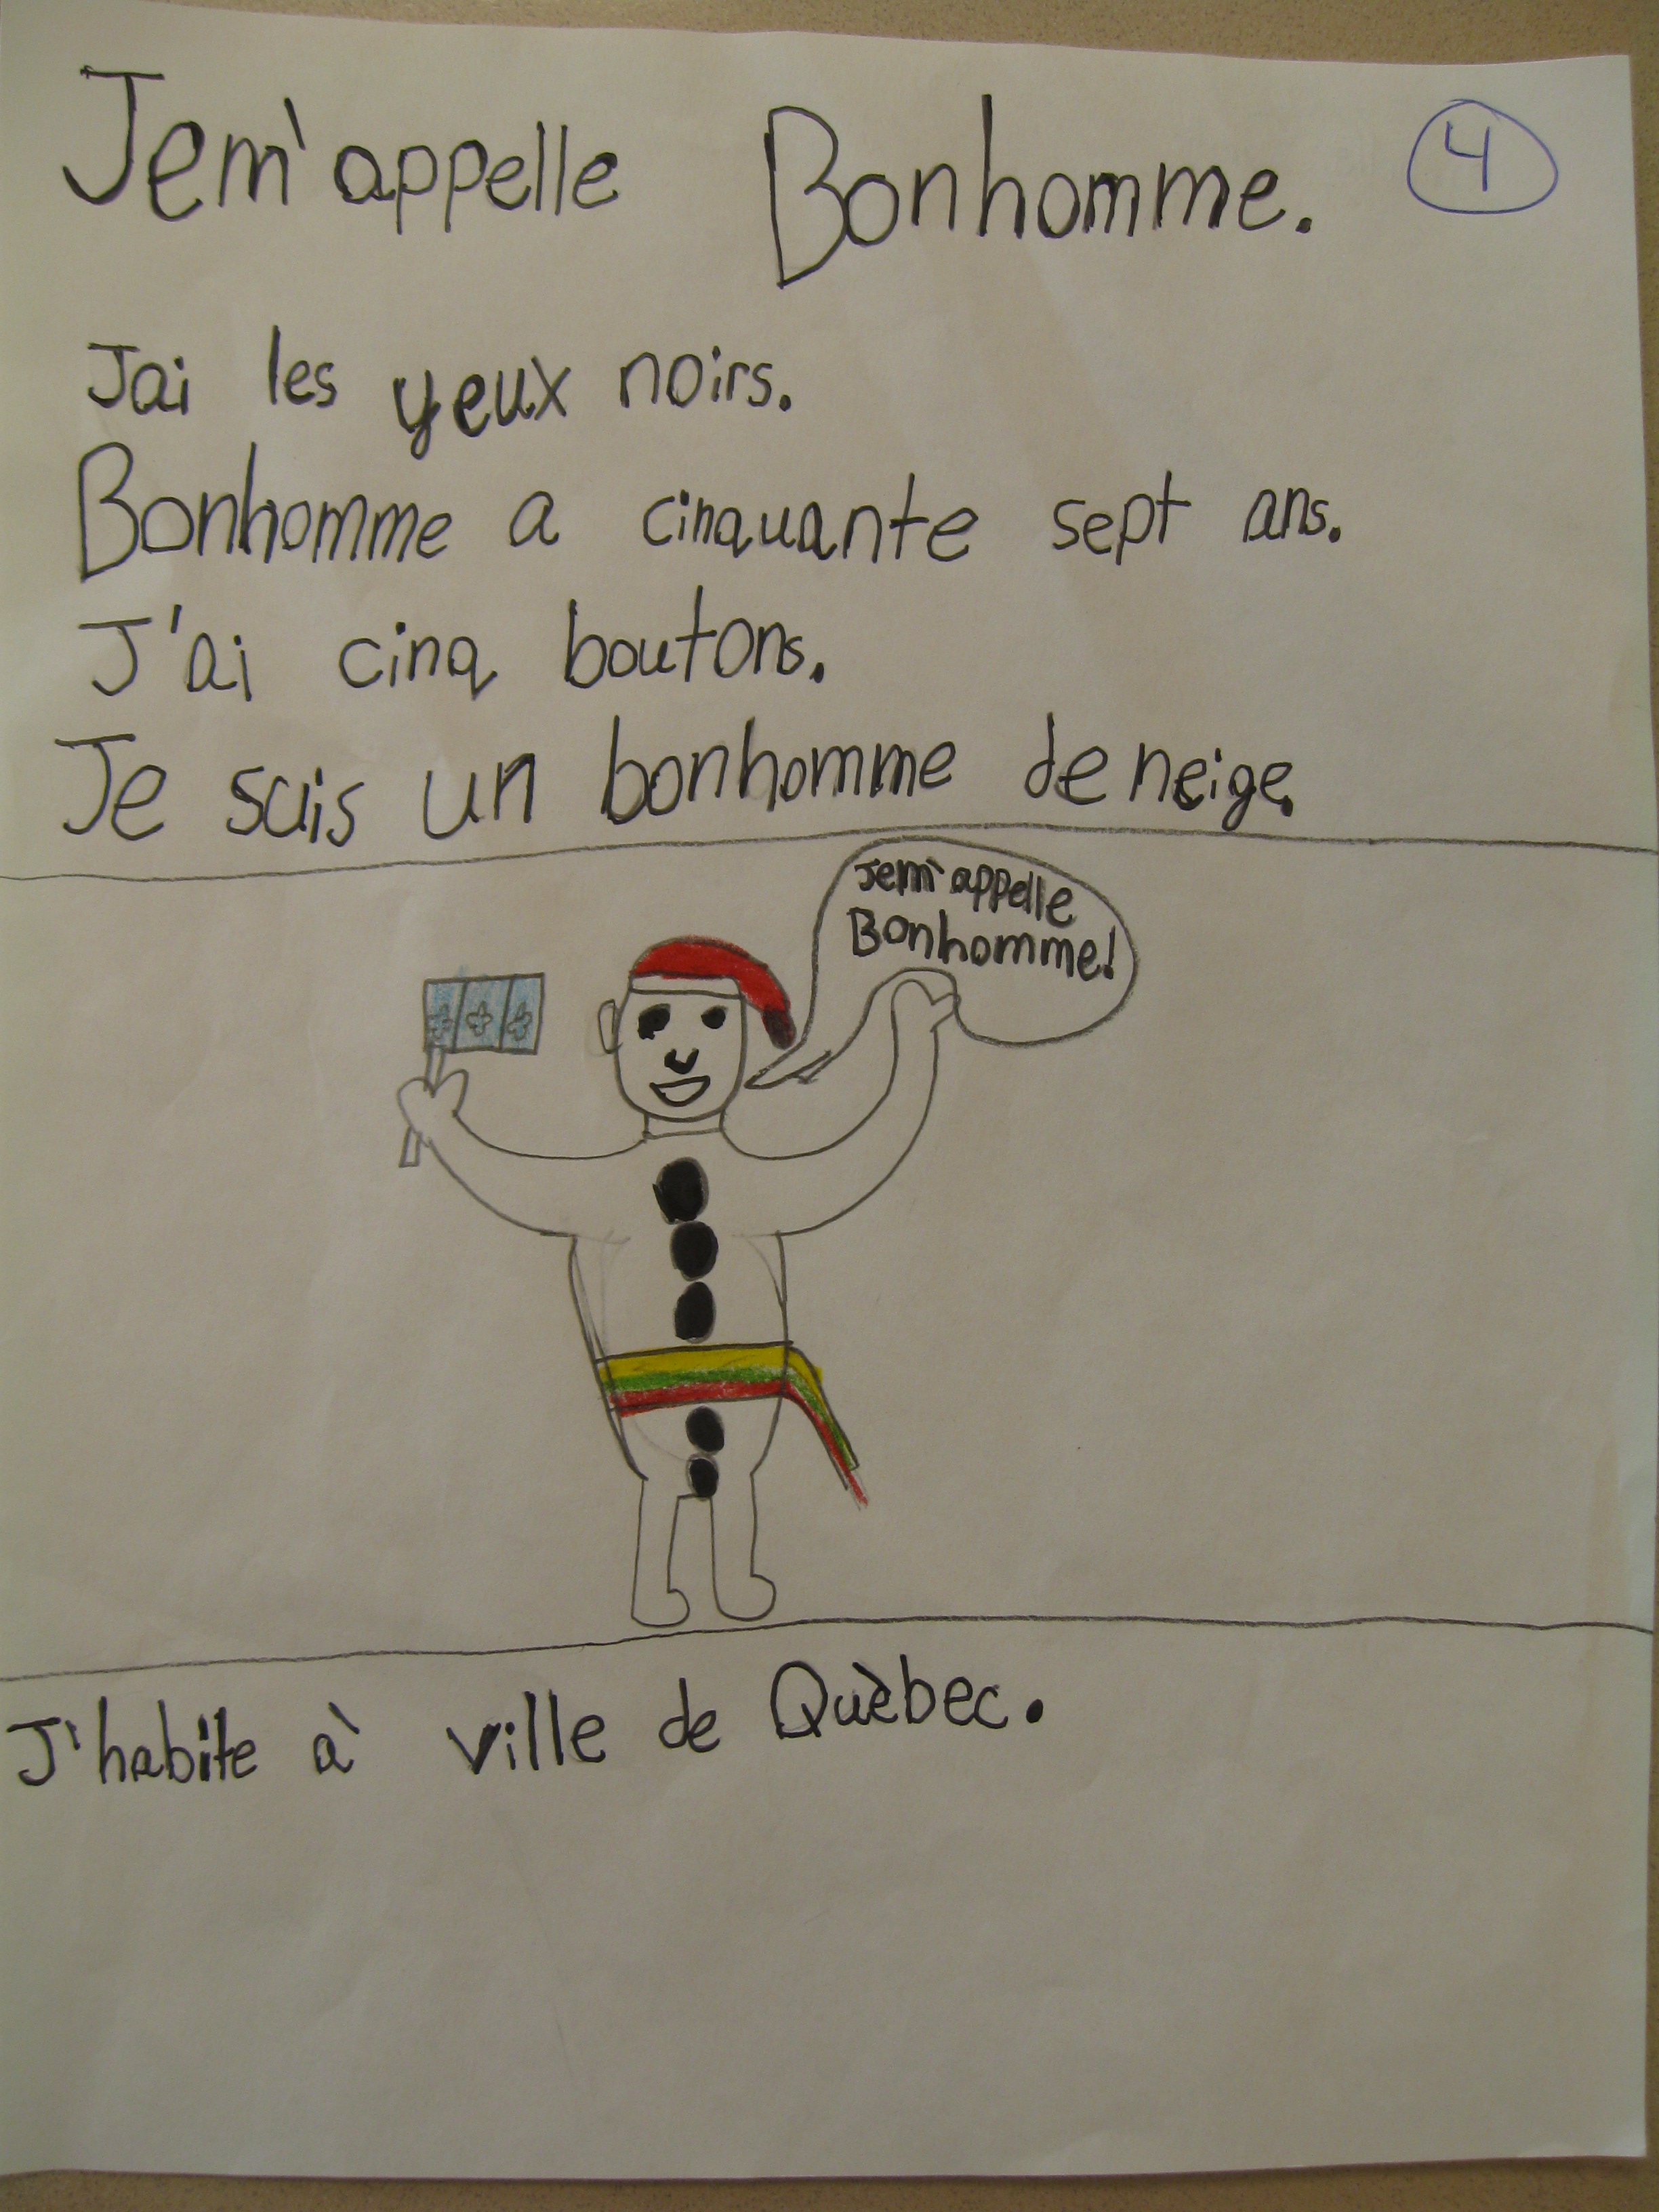 Jem'appelle Bonhomme. 4
Jai les yeux noirs.
Bonhomme a cinquante sept ans.
J'ai cinq boutons.
Je suis un bonhomme de neige.
Jem'appelle
Bonhomme!
J'habite à ville de Quèbec.